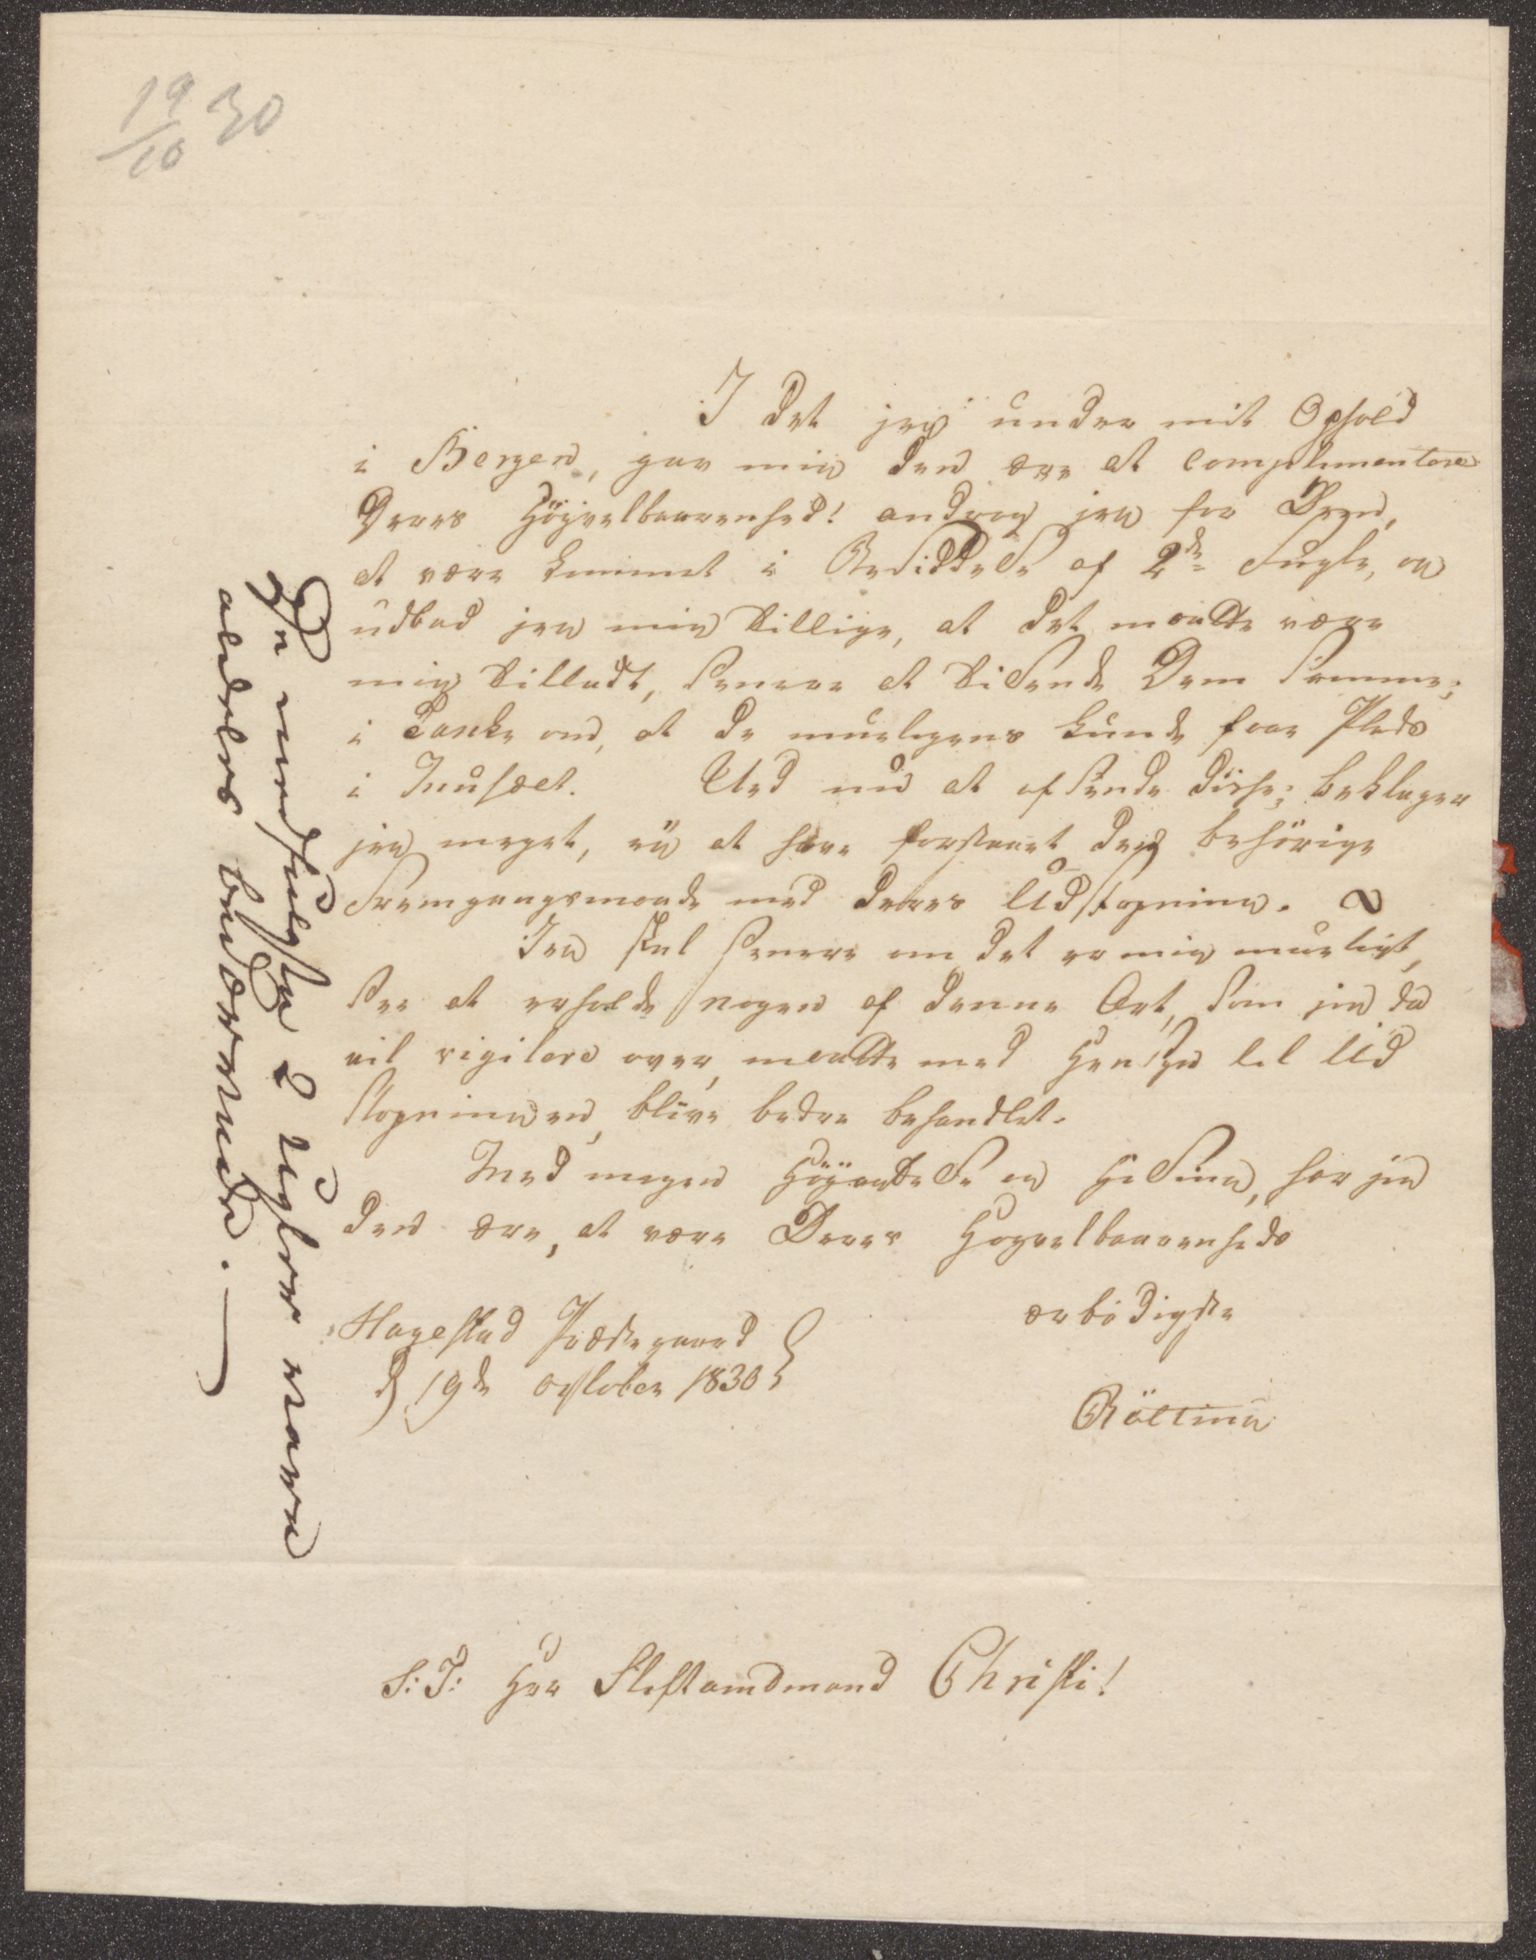 19/10 30
I det jeg under mit Ophold
i Bergen, gav mig den ære at complementere
Deres Höyvelbaarenhed! androg jeg for Dem,
at være kommet i Besiddelse af 2de Fugle, og
udbad jeg mig tillige, at det maatte være
mig tilladt, senere at tilsende Dem samme;
i Tanke om, at de mueligens kunde faae Plads
i Musæet. Ved nu at afsende disse; beklager
jeg meget, ey at have forstaaet den behörige
Fremgangsmaade med deres Udstopning.
Jeg skal senere om det er mig mueligt,
see at erholde nogen af denne Art, som jeg da
vil vigilere over, maatte med Hensyn til Ud
stopningen, blive bedre behandlet.
Med megen Höyagtelse og Hilsen, har jeg
den ære, at være Deres Hoyvelbaarenheds
ærbödigste
Hagestad Præstegaard
d 19de October 1830
Bölling
S: T: Herr Stiftamdmand Christi!
De medfulgte 2 Ugler vare
aldeles bedærvede.